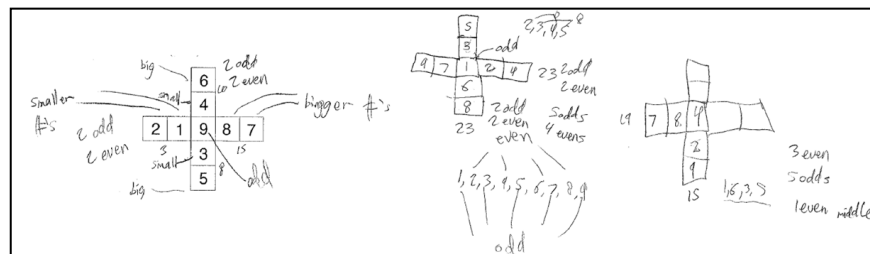 big
6
2 odd
2 even
10
small
4
smaller
#'s
bigger #'s
2 1 9 8 7
2 odd
2 even
3
15
small
3
8
odd
big
5
5
3
odd
2,3,4,5
8
9 7 1 2 4
23
2 odd
2 even
6
8
23
2 odd
2 even
5 odds
4 evens
even
1, 2, 3, 4, 5, 6, 7, 8, 9
odd
19
7 8 4
2
9
15
3 even
5 odds
1,6,3,5
1 even middle